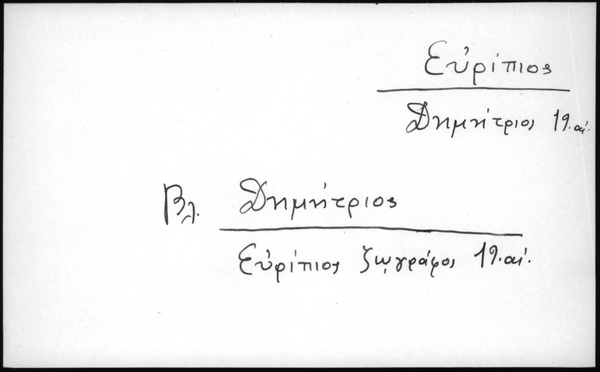 Εὐρίπιος
Δημήτριος 19. αἰ.
Βλ. Δημήτριος
Εὐρίπιος ζωγράφος 19. αἰ.